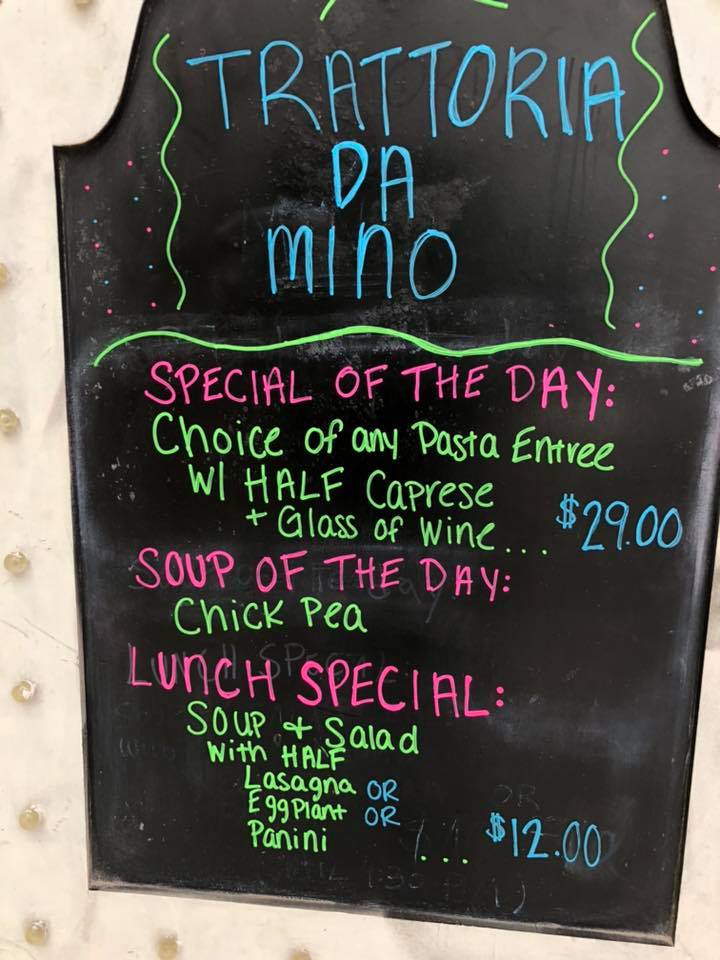 TRATTORIA
DA
MINO
SPECIAL OF THE DAY:
Choice of any Pasta Entree
W/ HALF Caprese
+ Glass of Wine... $29.00
SOUP OF THE DAY:
Chick Pea
LUNCH SPECIAL:
SOUP + Salad
with HALF
Lasagna OR
EggPlant OR
Panini ... $12.00